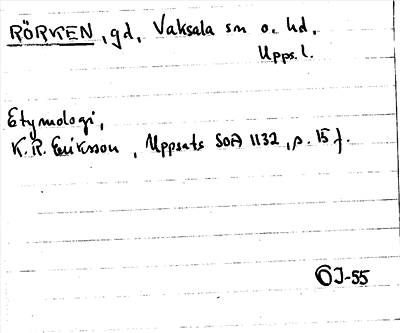 RÖRKEN, gd, Vaksala sn o. hd,
Upps. l.
Etymologi,
K. R. Eriksson, Uppsats SOA 1132, p. 15 f.
ÖJ-55